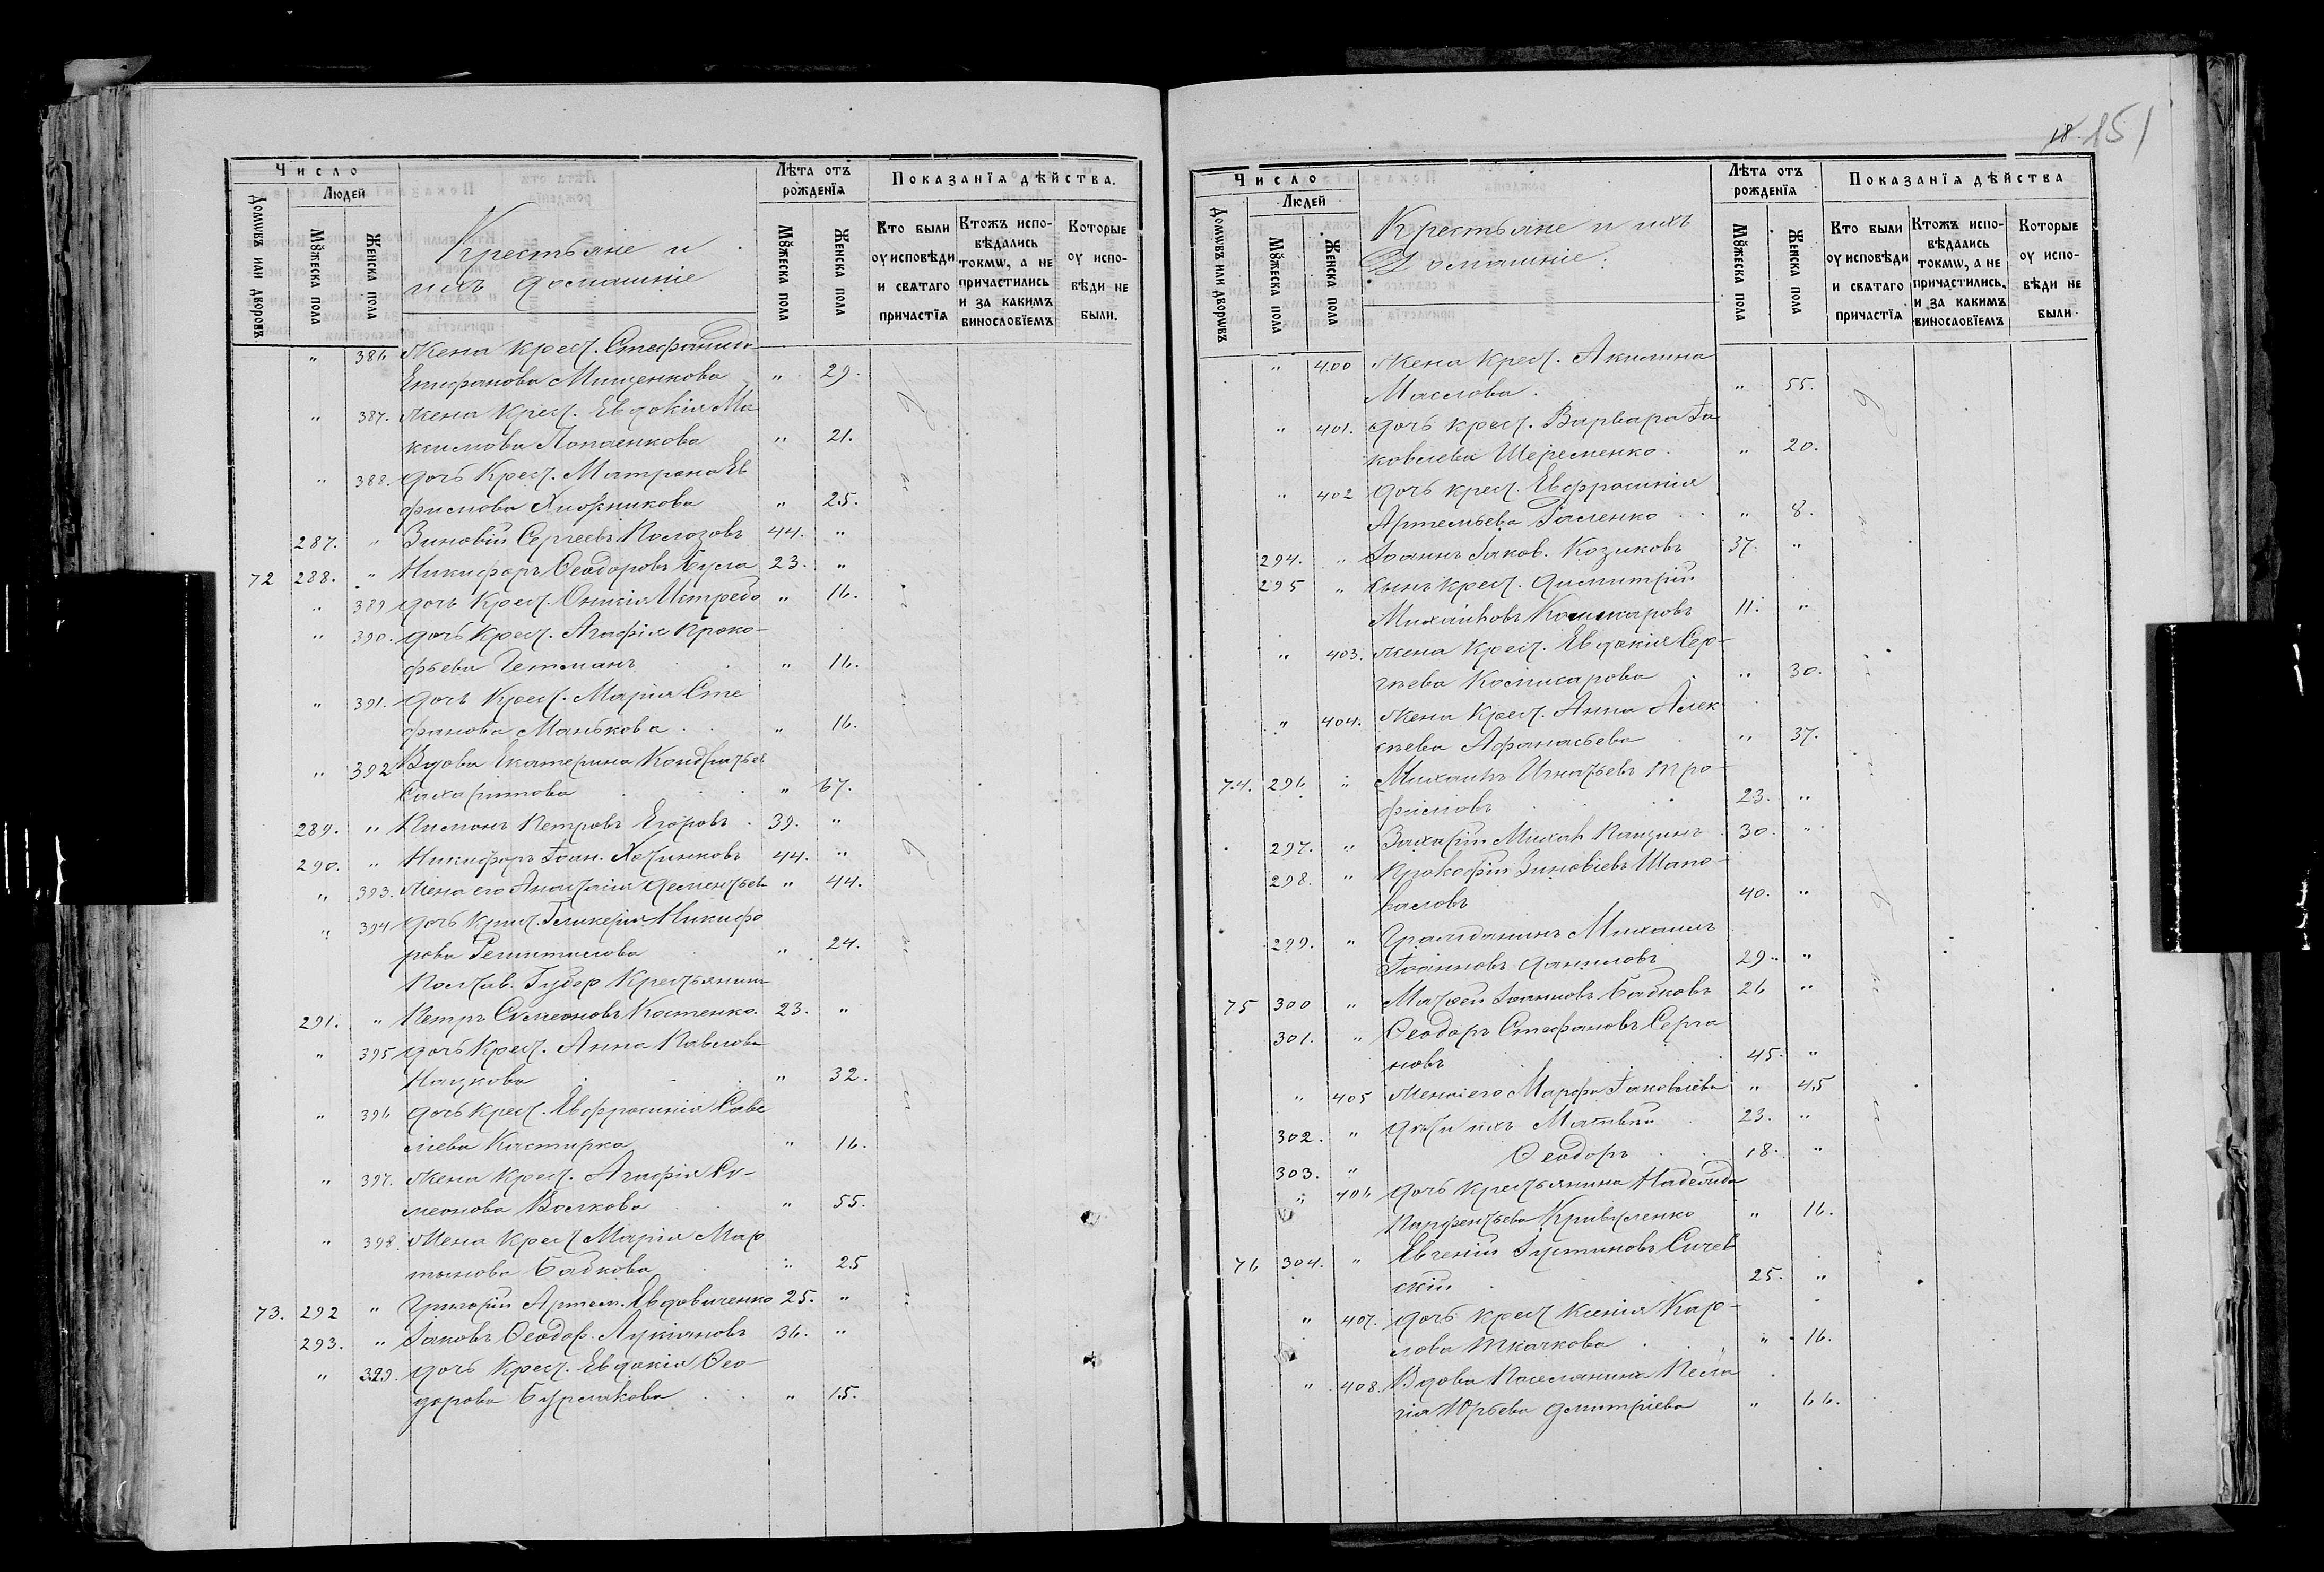 Число
Людей
Домѡвъ или дворовъ
Мꙋжеска пола
Женска пола
Крестьяне и
ихъ домашніе
Лѣта отъ рожденїя
Мꙋжеска пола
Женска пола
Показанїя дѣйства.
Кто были оу исповѣди и свѧтаго причастїя
Ктожъ испо-вѣдались токмѡ, а не причастились и за какимъ винословїемъ
Которые оу испо-вѣди не были.
" 386 Жена Крест. Стефанида
Епифанова Мищенкова " 29.
" 387. Жена Крест. Евдокія Ма
ксимова Потаенкова " 21.
" 388. дочь Крест. Матрона Ев
фимова " 25.
287. " Зиновій Сергеевъ Полозовъ 44. "
72 288. " Никифоръ Ѳеодоровъ Бугла 23. "
" 389 дочь Крест. " 16.
" 390. дочь Крест. Агафія Проко-
фьева Гетманъ " 16.
" 391. дочь Крест. Марія Сте
фанова Манькова " 16.
" 392 Вдова Екатерина Кондратьев
Сахаритова " 67.
289. " Пименъ Петровъ Егоровъ 39. "
290. " Никифоръ Іоан. 44. "
" 393. Жена его Анастасія Дементьев " 44.
" 394 дочь Крест. Гликерія Никифо
рова " 24.
Полтав. Губер Крестьянинъ
291. " Петръ Симеоновъ Костенко. 23. "
" 395 дочь Крест. Анна Павлова
Нацкова " 32.
" 396 дочь Крест. Евфросинія Саве
лиева Кастирка " 16.
" 397. Жена Крест. Агафія Си-
меонова Волкова " 55.
" 398. Жена Крест Марія Мар
тынова Бабкова " 25
73. 292 " Григорій Артем. Евдовиченко 25. "
293. " Іаковъ Ѳеодор. Лукіановъ 36. "
" 399. дочь Крест. Евдокія Ѳео-
дорова Бурлакова " 15.
18 151
Число
Людей
Домѡвъ или дворѡвъ
Мꙋжеска пола
Женска пола
Крестьяне и ихъ
Домашніе.
Лѣта отъ рожденїя
Мꙋжеска пола
Женска пола
Показанїя дѣйства
Кто были оу исповѣди и свѧтаго причастїя
Ктожъ испо-вѣдались токмѡ, а не причастились, и за какимъ винословїемъ
Которые оу испо-вѣди не были
" 400 Жена Крест. Акилина
Маслова. " 55.
" 401. дочь крест. Варвара Іа
ковлева Шеременко. " 20.
" 402 дочь крест. Евфросинія
Артемьева " 8.
294. " Іоаннъ Іаков. Козиковъ 37. "
295 " Сынъ крест. Димитрій
Михаиловъ 11. "
" 403. жена Крест. Евдокія Сер-
гѣева Комисарова " 30.
" 404. Жена Крест. Анна Алек
сѣева Афанасьева " 37.
74. 296 " Михаилъ Игнатьевъ Тро-
фимовъ 23. "
297. " Захарій Михаил 30. "
298. " Прокофій Зиновіевъ Шапо-
валовъ 40. "
299. " Гражданинъ Михаилъ
Іоанновъ Даниловъ 29. "
75 300 " Матѳей Іоанновъ Бабковъ 26 "
301. " Ѳеодоръ Стефановъ Серга
новъ 45. "
" 405 Жена его Марфа Іаковлева " 45
302. " Дѣти ихъ Матвѣй 23. "
303. " Ѳеодоръ 18. "
" 406 дочь Крестьянина Надежда
Парфентьева Кривуленко " 16.
76 304. " Евгеній Іустиновъ Сичев
скій 25. "
" 407. дочь крест Ксенія Кар-
лова Ткачкова " 16.
" 408. Вдова Поселянина Пела
гія Юрьева Дмитріева " 66.